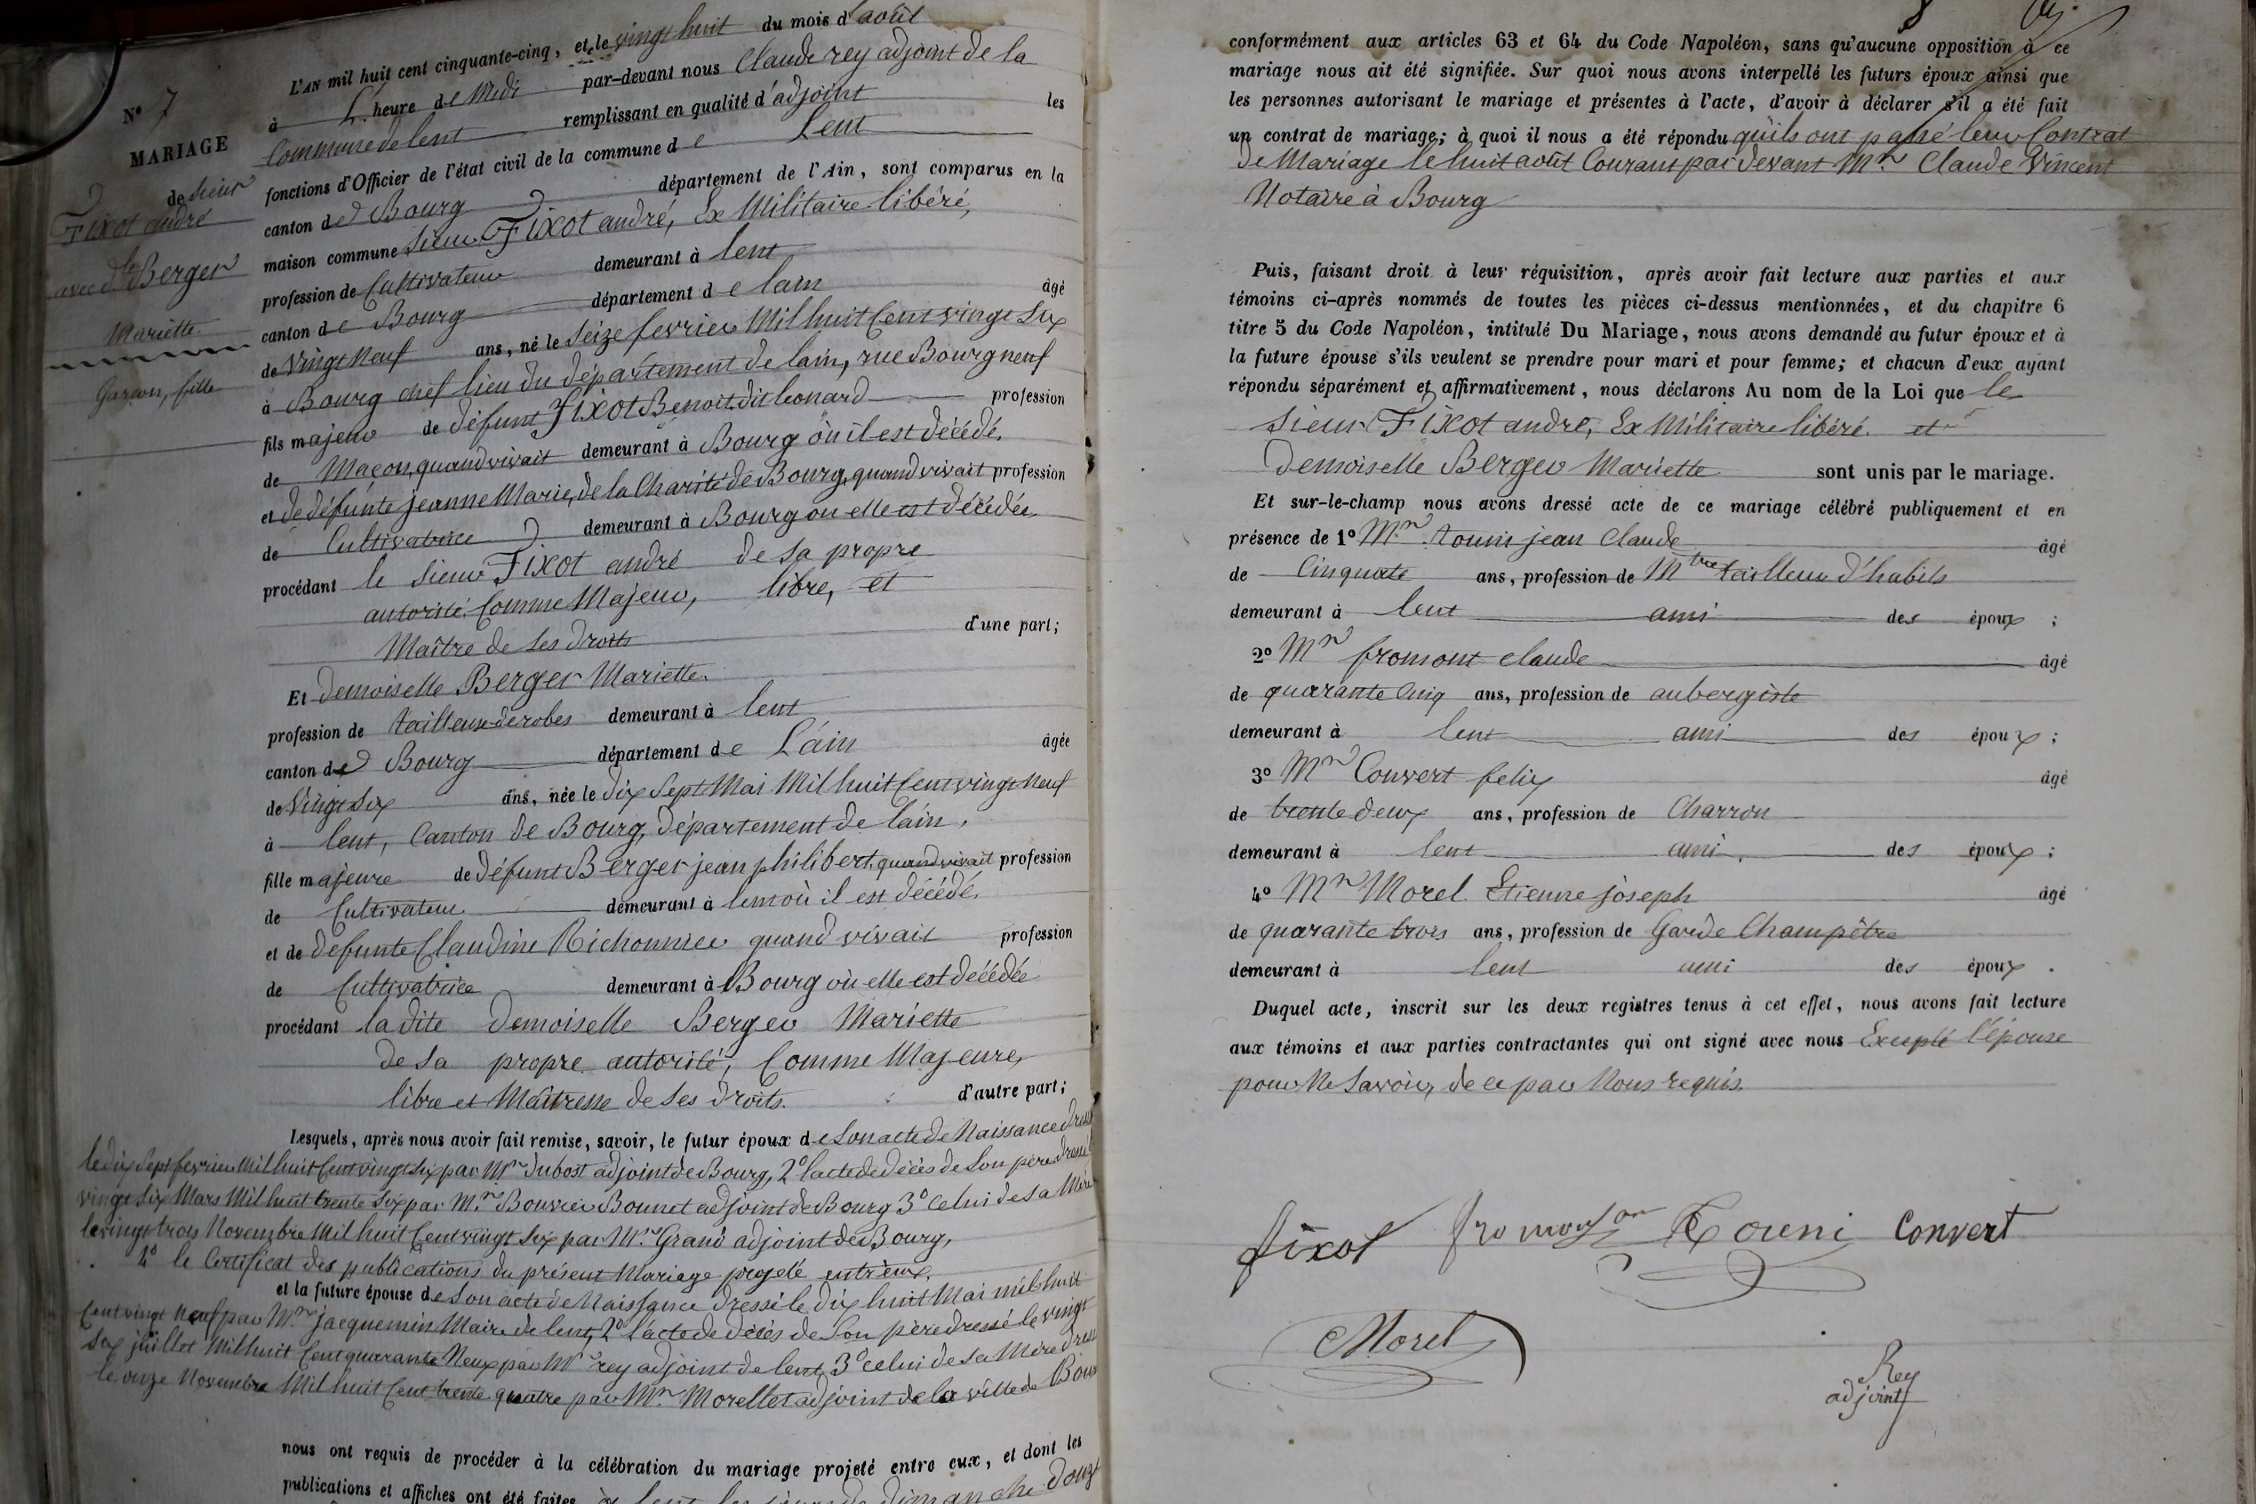 N° 7
MARIAGE
de Sieur
Fixot andré
avec dlle Berger
Mariette
Garçon, fille
L'AN mil huit cent cinquante-cinq, et le vingt huit du mois d'août
à L'heure de Midi par-devant nous Claude rey adjoint de la
Commune de lent remplissant en qualité d'adjoint les
fonctions d'Officier de l'état civil de la commune de Lent
canton de Bourg département de l'Ain, sont comparus en la
maison commune Sieur Fixot andré, Ex Militaire libéré,
profession de Cultivateur demeurant à lent
canton de Bourg département de lain âgé
de Vingt Neuf ans, né le Seize fevrier Mil huit Cent vingt Six
à Bourg chef lieu du département de lain, rue Bourgneuf
fils majeur de défunt Fixot Benoit dit leonard profession
de Maçon, quand vivait demeurant à Bourg où il est décédé,
et de défunte jeanne Marie, de la Charité de Bourg, quand vivait profession
de Cultivatrice demeurant à Bourg ou elle est décédée
procédant le Sieur Fixot andré de sa propre
autorité, Comme Majeur, libre, et
Maître de Ses droits d'une part;
Et demoiselle Berger Mariette.
profession de tailleuse de robes demeurant à lent
canton de Bourg département de L'ain âgée
de Vingt Six ans, née le dix Sept Mai Mil huit Cent vingt Neuf
à lent, Canton de Bourg, département de l'ain,
fille majeure de défunt Berger jean philibert, quand vivait profession
de Cultivateur demeurant à lent où il est décédé,
et de défunte Claudine Richonnier quand vivait profession
de Cultivatrice demeurant à Bourg où elle est décédée
procédant la dite demoiselle Berger Mariette
de sa propre autorité, Comme Majeure,
libre et Maîtresse de Ses droits. d'autre part;
Lesquels, après nous avoir fait remise, savoir, le futur époux de Son acte de Naissance dressé
le dix Sept fevrier Mil huit Cent vingt Six par Mr dubost adjoint de Bourg, 2° l'acte de décès de Son père dressé le
vingt Six Mars Mil huit trente Six par Mr Bouvier Bonnet adjoint de Bourg 3° celui de sa Mère
le vingt trois Novembre Mil huit Cent vingt Six par Mr Grand adjoint de Bourg,
4° le Certificat des publications du présent Mariage projeté entr'eux,
et la future épouse de Son acte de Naissance dressé le dix huit Mai mil huit
Cent vingt Neuf par Mr jacquemin Maire de lent, 2° l'acte de décès de Son père dressé le vingt
Six juillet Mil huit Cent quarante Neuf par Mr rey adjoint de lent, 3° celui de sa Mère dressé
le onze Novembre Mil huit Cent trente quatre par Mr Morellet adjoint de la ville de Bourg
nous ont requis de procéder à la célébration du mariage projeté entre eux, et dont les
publications et affiches ont été faites à lent les jours de dimanche douze
8
conformément aux articles 63 et 64 du Code Napoléon, sans qu'aucune opposition à ce
mariage nous ait été signifiée. Sur quoi nous avons interpellé les futurs époux ainsi que
les personnes autorisant le mariage et présentes à l'acte, d'avoir à déclarer s'il a été fait
un contrat de mariage; à quoi il nous a été répondu qu'ils ont passé leur Contrat
de Mariage le huit août Courant par devant Mr Claude Vincent
Notaire à Bourg
Puis, faisant droit à leur réquisition, après avoir fait lecture aux parties et aux
témoins ci-après nommés de toutes les pièces ci-dessus mentionnées, et du chapitre 6
titre 5 du Code Napoléon, intitulé Du Mariage, nous avons demandé au futur époux et à
la future épouse s'ils veulent se prendre pour mari et pour femme; et chacun d'eux ayant
répondu séparément et affirmativement, nous déclarons Au nom de la Loi que le
Sieur Fixot andré, Ex Militaire libéré et
Demoiselle Berger Mariette sont unis par le mariage.
Et sur-le-champ nous avons dressé acte de ce mariage célébré publiquement et en
présence de 1° Mr touni jean Claude âgé
de Cinquate ans, profession de Mtre tailleur d'habits
demeurant à lent ami des époux ;
2° Mr fromont claude âgé
de quarante Cinq ans, profession de aubergiste
demeurant à lent ami des époux ;
3° Mr Convert felix âgé
de trente deux ans, profession de Charron
demeurant à lent ami, des époux ;
4° Mr Morel Etienne joseph âgé
de quarante trois ans, profession de Garde Champêtre
demeurant à lent ami des époux .
Duquel acte, inscrit sur les deux registres tenus à cet effet, nous avons fait lecture
aux témoins et aux parties contractantes qui ont signé avec nous Excepté l'épouse
pour Ne Savoir, de ce par Nous requis.
fixot fromont Touni Convert
Morel
Rey
adjoint